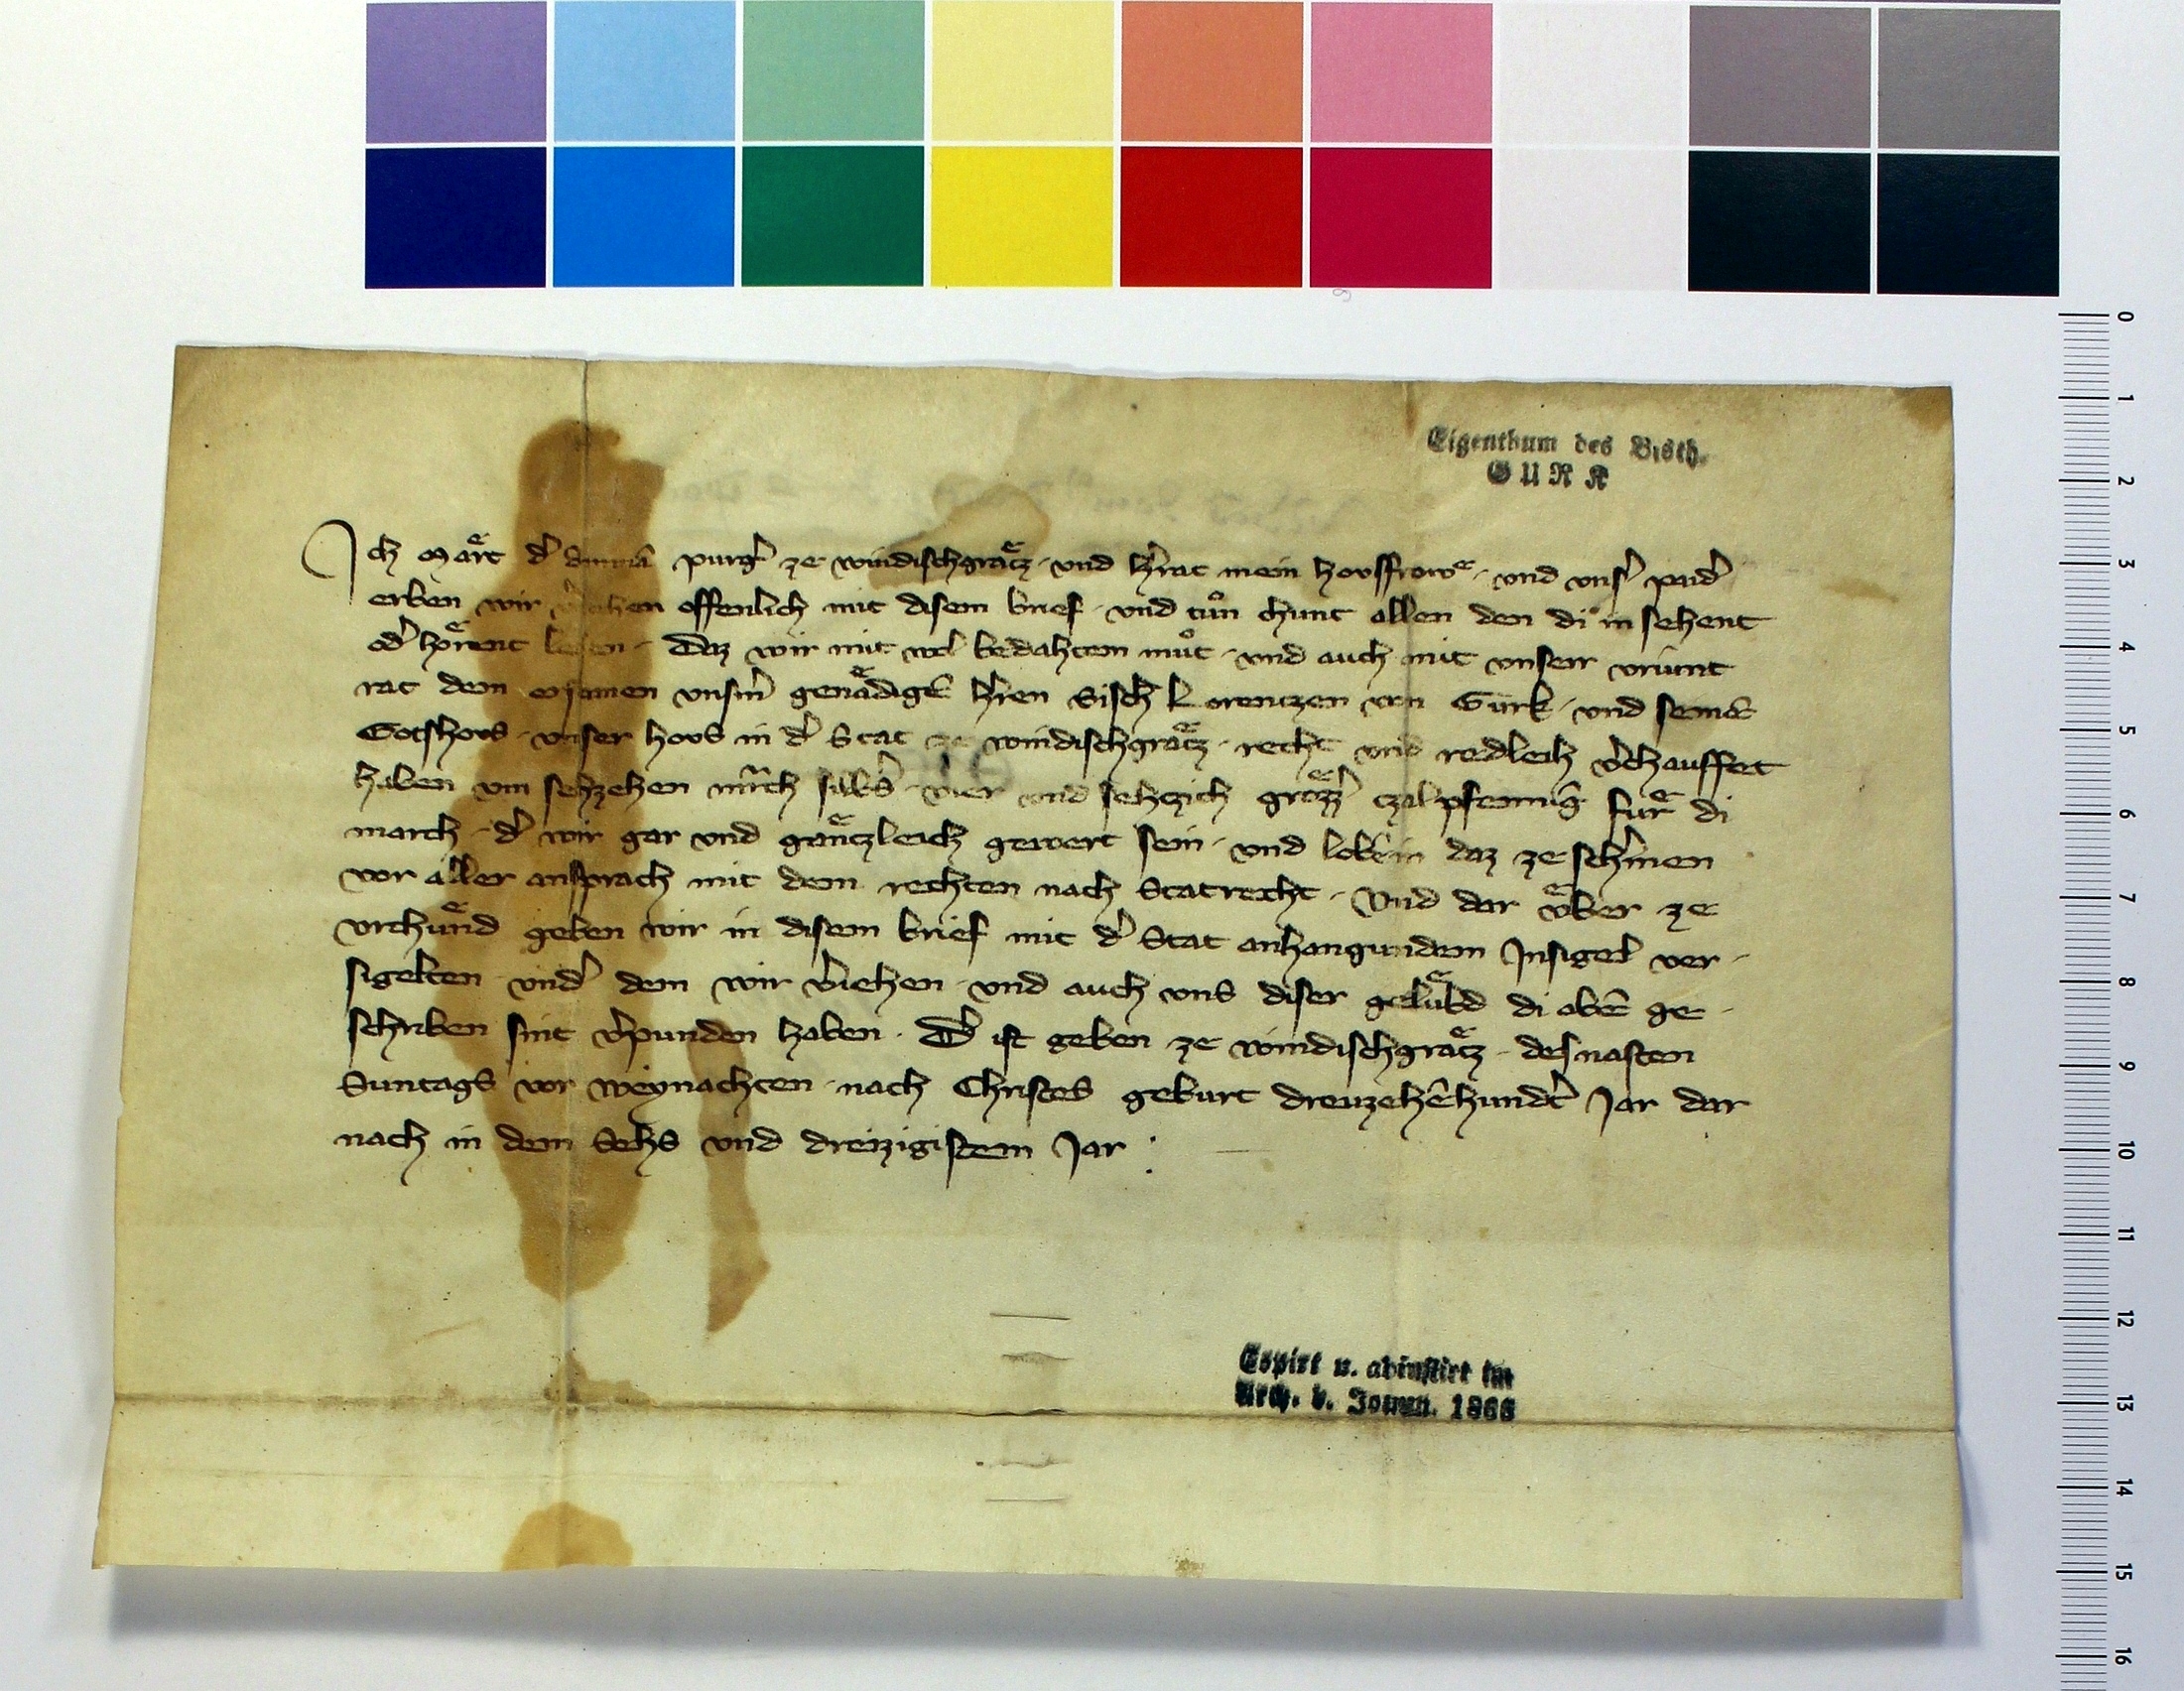 Eigenthum des Bisth.
GURK
Ich Maͤrt d' purg' ze windischgraͤtz · vnd h'rat mein housfrowͤ · vnd vns' paid'
erben wir v'iehen offenlich mit disem brief · vnd tuͦn chunt allen den di in sehent
od' hoͤrent lesen · Daz wir mit wol bedahtem muͦt · vnd auch mit vnserr vriunt
rat dem ersamen vnsm' genaͤdigē h'ren Bisch' Lorentzen von Gurk · vnd seinē
Gotshous · vnser hous in d' Stat ze windischgraͤtz · recht vnd redleich v'chauffet
haben vm sehzehen march silb's · vier vnd sehczich groͤzz' czalpfennig fuͤr di
march · d' wir gar vnd gaͤntzleich gewert sein · vnd loben in daz ze schermen
vor aller ansprach mit dem rechten nach Statrecht · Vnd dar vͤber ze
vrchuͤnd geben wir in disem brief mit d' Stat anhangundem Insigel ver-
sigelten · vnd' dem wir v'iehen · vnd auch vns diser geluͤbd di obē ge-
schriben sint v'punden haben · D' ist geben ze windischgraͤtz · des nasten
Suntags vor weynachten · nach Christes geburt dreuzehēhundt' Jar dar
nach in dem Sehs vnd dreizigistem Jar :
Copirt u. abimstirt im
Arch. d. Joann. 1866
0
1
2
3
4
5
6
7
8
9
10
11
12
13
14
15
16